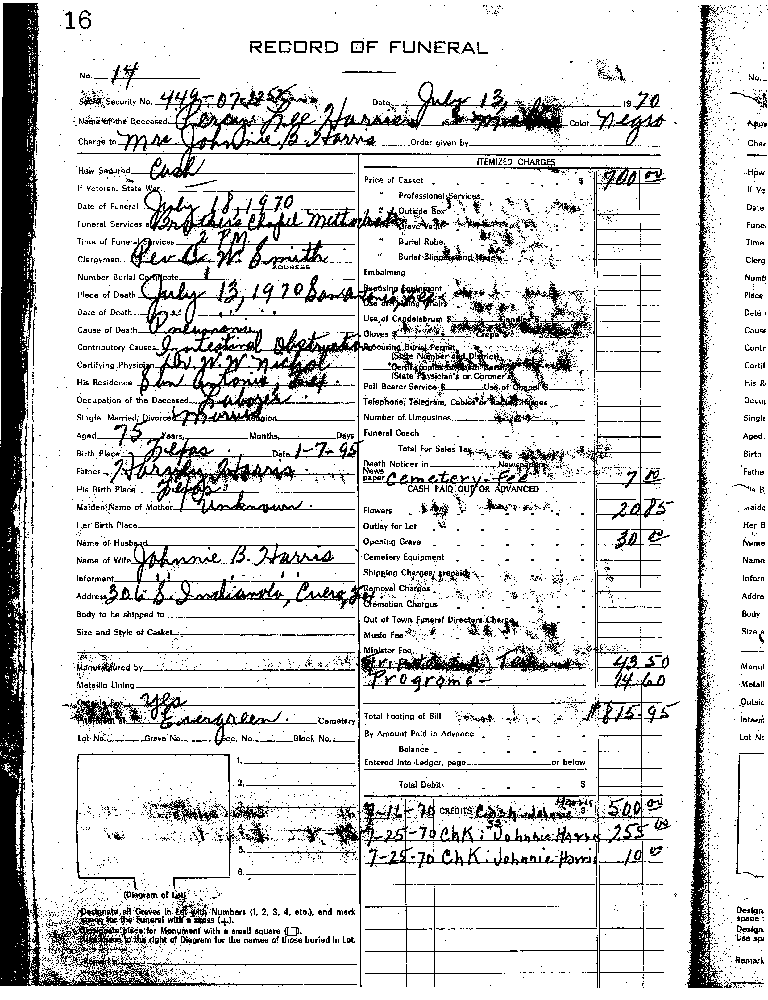 16
RECORD OF FUNERAL
No. 14
Social Security No. 449-07- Date July 13, 1970
Name of the Deceased Lee Harris Color Negro
Charge to Mrs. Johnnie B. Harris Order given by
How Secured Cash
If Veteran, State War
Date of Funeral July 18, 1970
Funeral Services Brothers Chapel Methodist
Time of Funeral Services 2 P.M.
Clergyman Rev. W. Smith
ADDRESS
Number Burial Certificate
Place of Death July 13, 1970 San Antonio, Tex.
Date of Death
Cause of Death Pneumonia
Contributory Causes Intestinal Obstruction
Certifying Physician Dr. W. W. Nichol
His Residence San Antonio, Tex.
Occupation of the Deceased Laborer
Single, Married, Divorced Married Religion
Aged 75 Years, Months, Days
Birth Place Texas Date 1-7-95
Father Harvey Harris
His Birth Place Texas
Maiden Name of Mother Unknown
Her Birth Place
Name of Husband
Name of Wife Johnnie B. Harris
Informant
Address 306 S. Indianola, Cuero, Tex.
Body to be shipped to
Size and Style of Casket
Manufactured by
Metallic Lining
Yes
Evergreen Cemetery
Lot No. Grave No. Sec. No. Block No.
1.
2.
5.
6.
(Diagram of Lot)
Designate all Graves in Lot with Numbers (1, 2, 3, 4, etc.), and mark
space for the Funeral with a cross (+).
Designate place for Monument with a small square (□).
to the right of Diagram for the names of those buried in Lot.
ITEMIZED CHARGES
Price of Casket $ 700 00
" Professional Services
" Outside Box
" Grave Vault
" Burial Robe
" Burial Slippers and Hose
Embalming
Use of Candelabrum $ Candles $
Gloves $ Crepe $
Securing Burial Permit
(State Number and District)
(State Physician's or Coroner's)
Pall Bearer Service $ Use of Chapel $
Telephone, Telegram, Cables or Radio Charges
Number of Limousines
Funeral Coach
Total for Sales Tax
Death Notices in Newspapers
News
paper Cemetery Fee 7 00
CASH PAID OUT OR ADVANCED
Flowers 20 85
Outlay for Lot
Opening Grave 30 00
Cemetery Equipment
Shipping Charges, prepaid
Removal Charges
Cremation Charges
Out of Town Funeral Directors Charge
Music Fee
Minister Fee
43.50
Programs - 14.60
Total Footing of Bill $815.95
By Amount Paid in Advance
Balance
Entered into Ledger, page or below
Total Debits $
7-11-70 CREDITS Cash Johnnie Harris $ 500 00
7-25-70 Chk: Johnnie Harris 255 00
7-25-70 Chk: Johnnie Harris 10 00